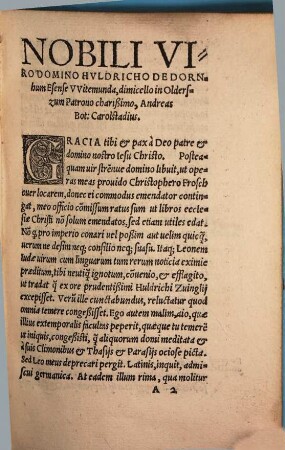 NOBILI VI=
RO DOMINO HVLDRICHO DE DORN=
hum Esense VVitemunda, dimicello in Olders=
zum Patrono charißimo, Andreas
Bot: Carolstadius.
GRACIA tibi & pax à Deo patre &
domino nostro Iesu Christo. Postea=
quam uir strēnue domino libuit, ut o=
peras meas prouido Christophero Frosch
ouer locarem, donec ei commodus emendator contin=
gat, meo officio cōmissum ratus sum ut libros eccle=
siæ Christi nō solum emendatos, sed etiam utiles edat.
Nō q̃ pro imperio conari uel poßim aut uelim quicq̃,
uerum ne desim neq; consilio neq; suasu. Itaq; Leonem
Iudæ uirum cum linguarum tum rerum noticia eximie
præditum, tibi neutiq̃ ignotum, cōuenio, & efflagito,
ut tradat q̃ ex ore prudentißimi Huldrichi Zuinglij
excepisset. Verū ille cunctabundus, reluctatur quod
omnia temere congeßisset. Ego autem malim, aio, quæ
illius extemporalis ficulnea peperit, quæque tu temerè
ut iniquis, congeßisti, q̃ aliquorum domi meditata &
à suis Climonibus & Thasijs & Parasijs ociose picta.
Sed Leo meus deprecari pergit. Latinis, inquit, admi=
scui germanica. At eadem illum rima, qua molitur
A 2